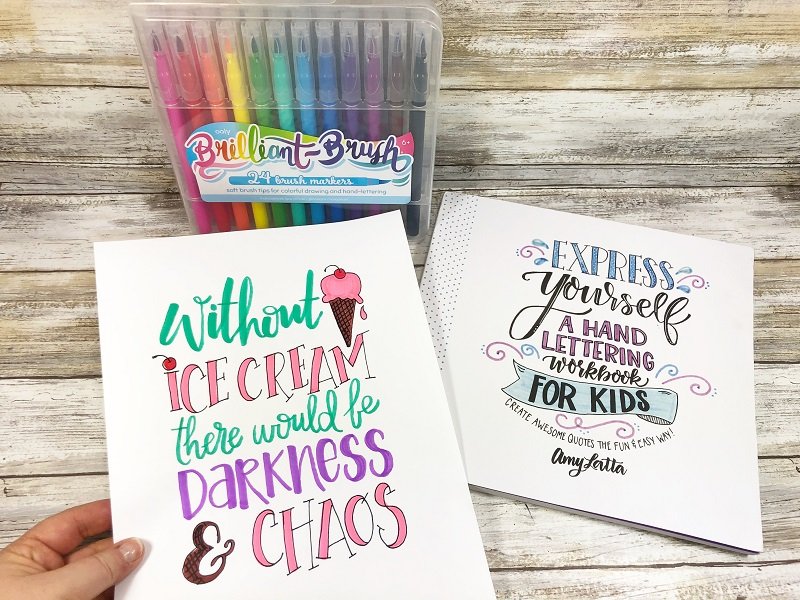 ooly
Brilliant-Brush
6+
24 brush markers
soft brush tips for colorful drawing and hand-lettering
Without
ICE CREAM
there would be
DARKNESS
& CHAOS
EXPRESS
yourself
A HAND
LETTERING
workbook
FOR KIDS
CREATE AWESOME QUOTES THE FUN & EASY WAY!
Amy Latta